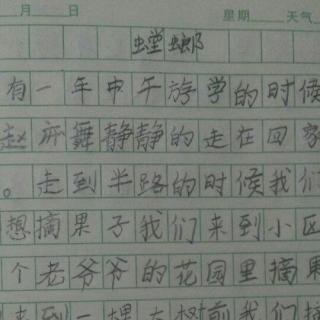 月 日 星期 天气
螳螂
有一年中午放学的时候
赵亦舞静静的走在回家
。走到半路的时候我们
想摘果子我们来到小区
个老爷爷的花园里摘果
来到一棵大树前我们摘